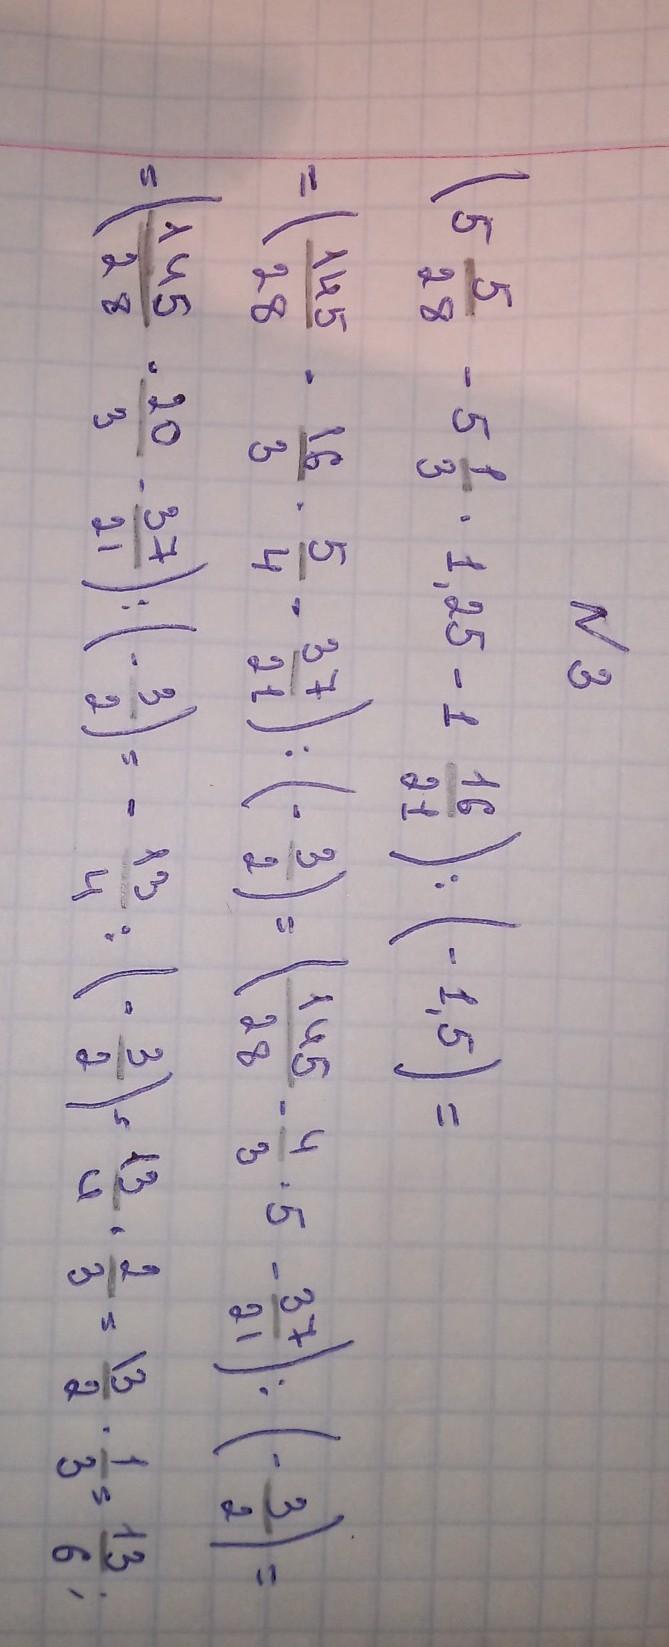 N 3
(5 5/28 - 5 1/3 · 1,25 - 1 16/21) : (-1,5) =
= (145/28 - 16/3 · 5/4 - 37/21) : (-3/2) = (145/28 - 4/3 · 5 - 37/21) : (-3/2) =
= (145/28 - 20/3 - 37/21) : (-3/2) = - 13/4 : (-3/2) = 13/4 · 2/3 = 13/2 · 1/3 = 13/6;